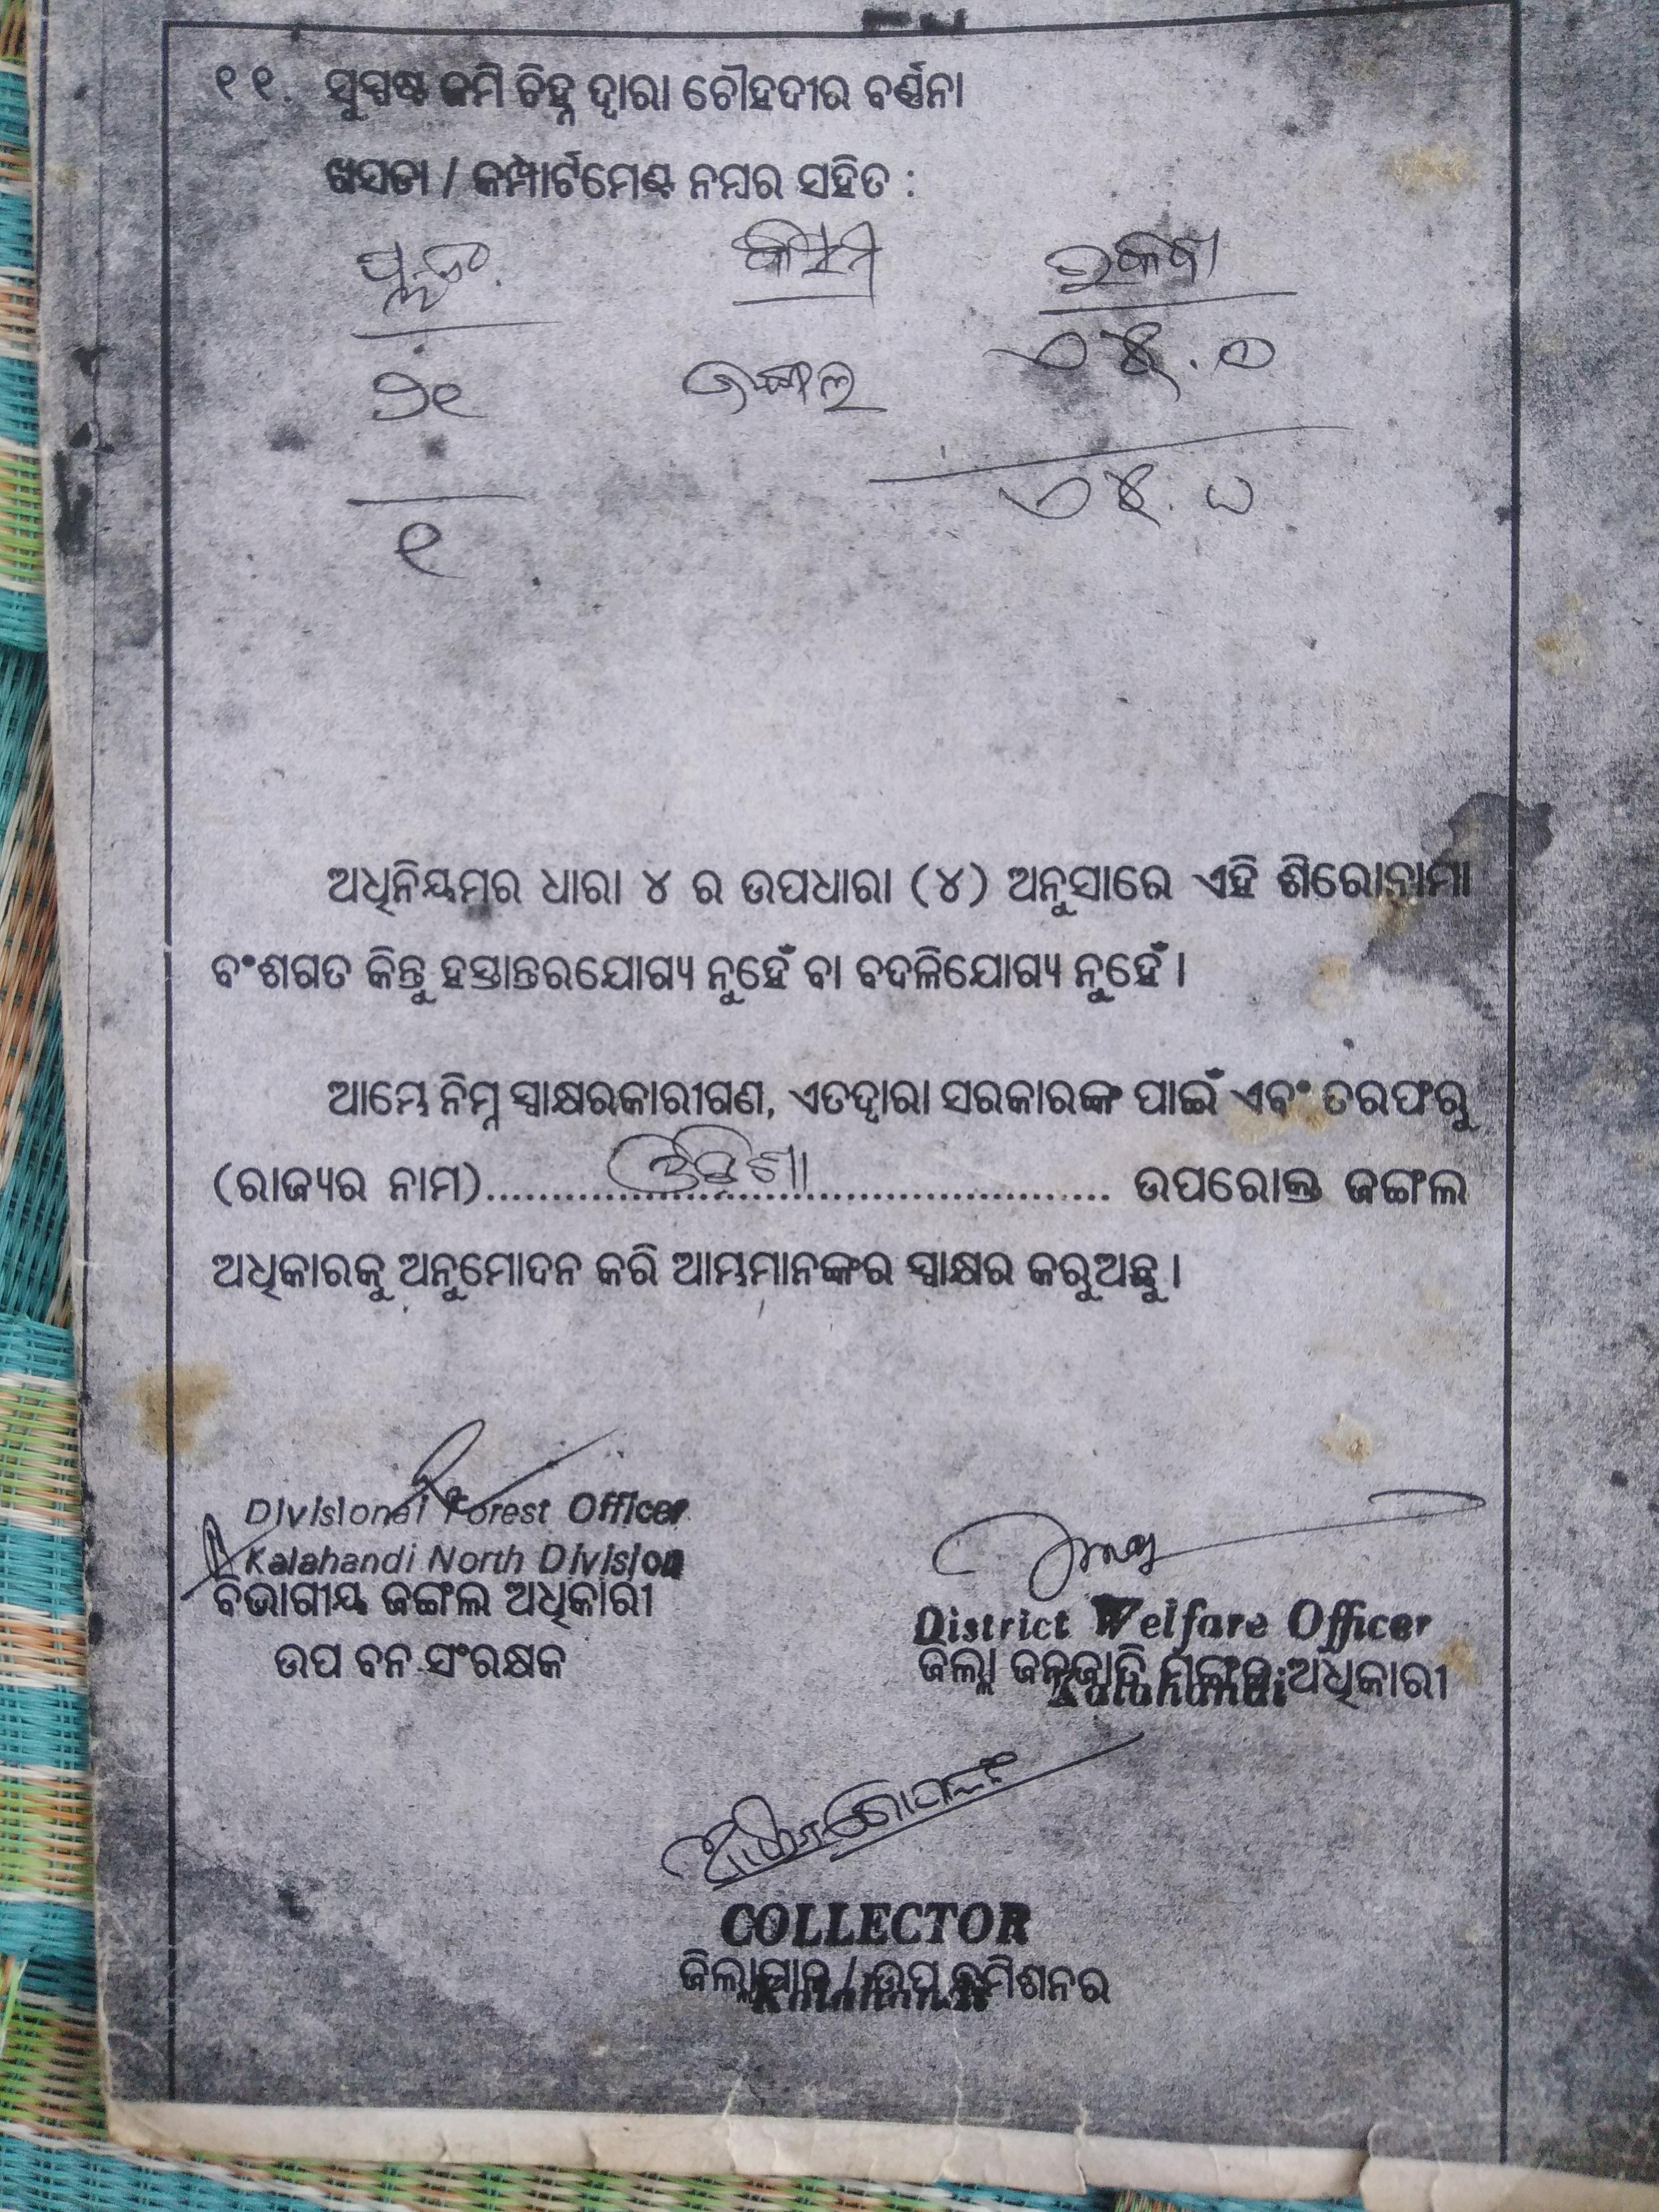 ୧୧. ସୁସ୍ପଷ୍ଟ ଜମି ଚିହ୍ନ ଦ୍ୱାରା ଚୌହଦୀର ବର୍ଣ୍ଣନା
ଖସଡା / କମ୍ପାର୍ଟମେଣ୍ଟ ନମ୍ବର ସହିତ :
ପ୍ଲଟ କିସମ ରକବା
୨୧ ଜଙ୍ଗଲ
୧
ଅଧିନିୟମର ଧାରା ୪ ର ଉପଧାରା (୪) ଅନୁସାରେ ଏହି ଶିରୋନାମା
ବଂଶଗତ କିନ୍ତୁ ହସ୍ତାନ୍ତରଯୋଗ୍ୟ ନୁହେଁ ବା ବଦଳିଯୋଗ୍ୟ ନୁହେଁ ।
ଆମ୍ଭେ ନିମ୍ନ ସ୍ୱାକ୍ଷରକାରୀଗଣ, ଏତଦ୍ୱାରା ସରକାରଙ୍କ ପାଇଁ ଏବଂ ତରଫରୁ
(ରାଜ୍ୟର ନାମ)........ଓଡ଼ିଶା........ ଉପରୋକ୍ତ ଜଙ୍ଗଲ
ଅଧିକାରକୁ ଅନୁମୋଦନ କରି ଆମ୍ଭମାନଙ୍କର ସ୍ୱାକ୍ଷର କରୁଅଛୁ ।
Divisional Forest Officer
Kalahandi North Division
ବିଭାଗୀୟ ଜଙ୍ଗଲ ଅଧିକାରୀ
ଉପ ବନ ସଂରକ୍ଷକ
District Welfare Officer
ଜିଲ୍ଲା ଜନଜାତି ମଙ୍ଗଳ ଅଧିକାରୀ
Kalahandi
COLLECTOR
ଜିଲ୍ଲାପାଳ / ଉପ କମିଶନର
Kalahandi